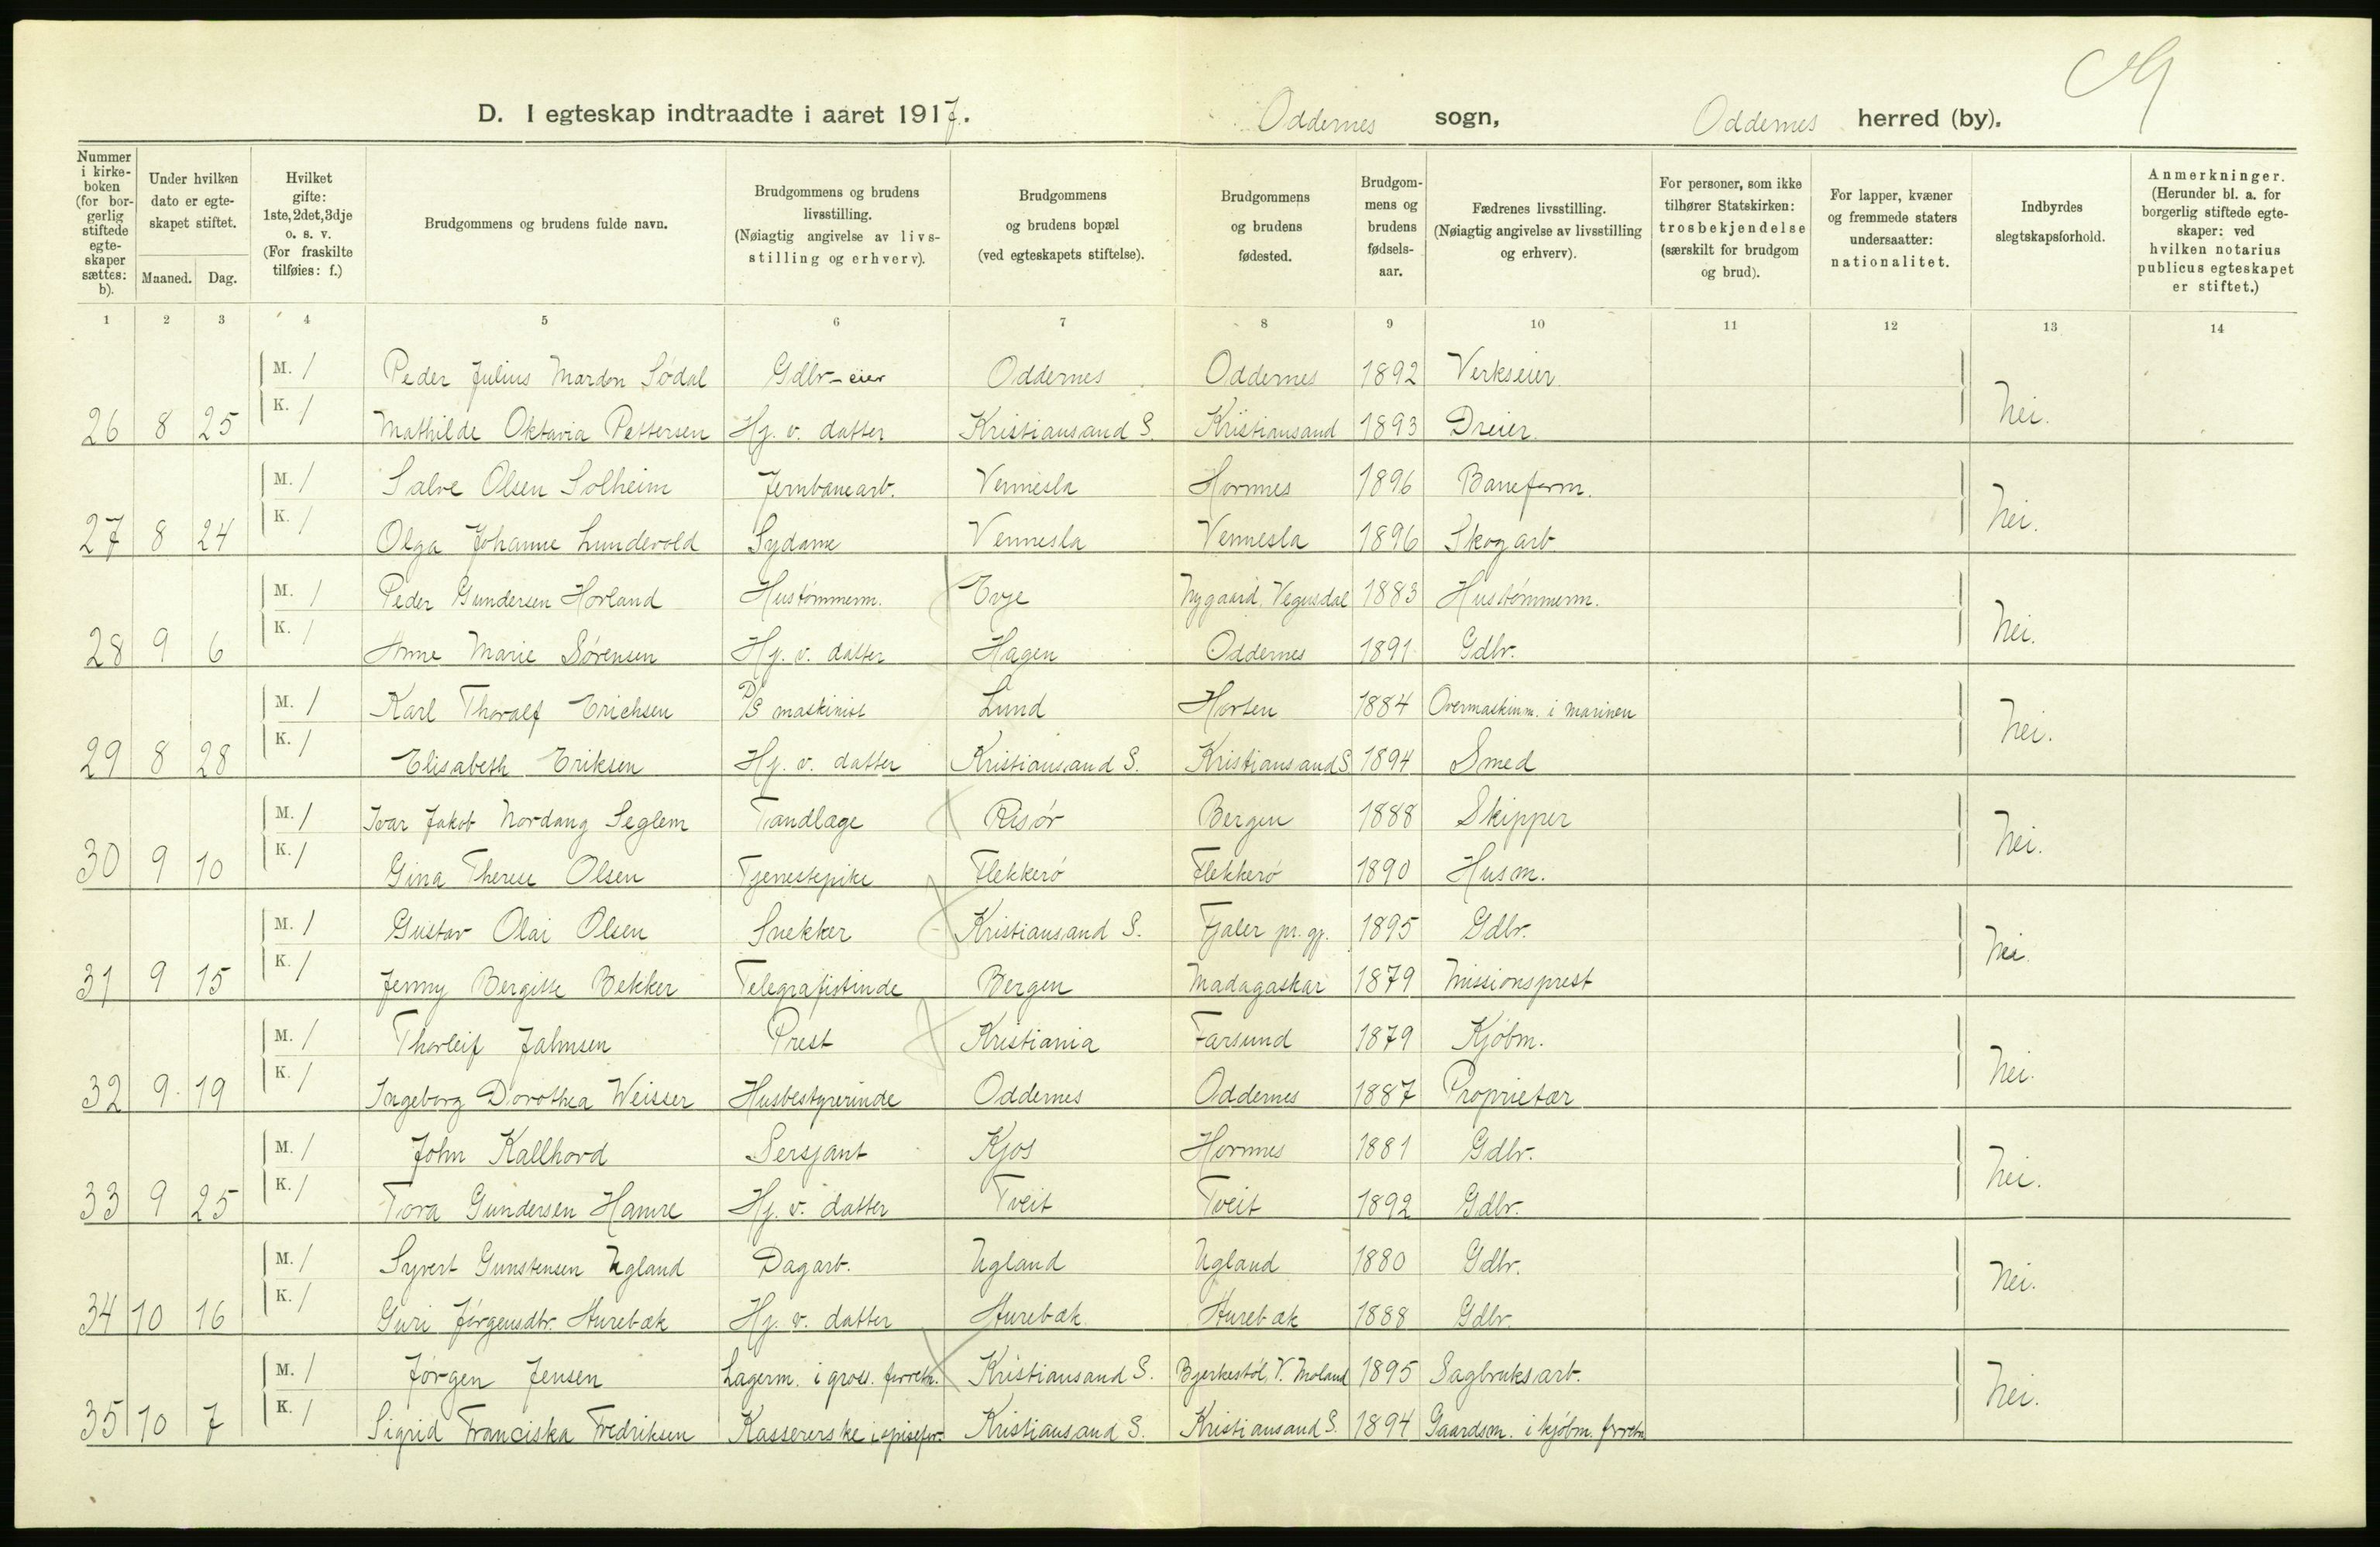 D. I egteskap indtraadte i aaret 1917. Oddernes sogn, Oddernes herred (by).
Nummer i kirkeboken (for borgerlig stiftede egteskaper sættes: b).
Under hvilken dato er egteskapet stiftet.
Maaned. Dag.
Hvilket gifte: 1ste, 2det, 3dje o. s. v. (For fraskilte tilføies: f.)
Brudgommens og brudens fulde navn.
Brudgommens og brudens livsstilling. (Nøiagtig angivelse av livsstilling og erhverv).
Brudgommens og brudens bopæl (ved egteskapets stiftelse).
Brudgommens og brudens fødested.
Brudgommens og brudens fødselsaar.
Fædrenes livsstilling. (Nøiagtig angivelse av livsstilling og erhverv).
For personer, som ikke tilhører Statskirken: trosbekjendelse (særskilt for brudgom og brud).
For lapper, kvæner og fremmede staters undersaatter: nationalitet.
Indbyrdes slegtskapsforhold.
Anmerkninger. (Herunder bl. a. for borgerlig stiftede egteskaper: ved hvilken notarius publicus egteskapet er stiftet.)
1 2 3 4 5 6 7 8 9 10 11 12 13 14
M. 1 Peder Julius Mardon Sødal Gdbr-eier Oddernes Oddernes 1892 Verkseier
26 8 25 K. 1 Mathilde Oktavia Pettersen Hj. v. datter Kristiansand S. Kristiansand 1893 Dreier. Nei.
M. 1 Salve Olsen Solheim Jernbanearb. Vennesla Hornnes 1896 Baneform.
27 8 24 K. 1 Olga Johanne Lundevold Sydame Vennesla Vennesla 1896 Skogarb. Nei.
M. 1 Peder Gundersen Hovland Hustømmerm. Evje Nygaard, Vegusdal 1883 Hustømmerm.
28 9 6 K. 1 Anne Marie Sørensen Hj. v. datter Hagen Oddernes 1891 Gdbr. Nei.
M. 1 Karl Thoralf Erichsen D/S maskinist Lund Horten 1884 Overmaskinm. i marinen
29 8 28 K. 1 Elisabeth Eriksen Hj. v. datter Kristiansand S. Kristiansand S. 1894 Smed Nei.
M. 1 Ivar Jakob Nordang Seglem Tandlæge Risør Bergen 1888 Skipper
30 9 10 K. 1 Gina Therese Olsen Tjenestepike Flekkerø Flekkerø 1890 Husm. Nei.
M. 1 Gustav Olai Olsen Snekker Kristiansand S. Fjaler pr. gj. 1895 Gdbr.
31 9 15 K. 1 Jenny Bergitte Bekker Telegrafistinde Bergen Madagaskar 1879 Missionsprest Nei.
M. 1 Thorleif Jahnsen Prest Kristiania Farsund 1879 Kjøbm.
32 9 19 K. 1 Ingeborg Dorothea Weisser Husbestyrerinde Oddernes Oddernes 1887 Proprietær Nei.
M. 1 John Kallhovd Sersjant Kjos Hornnes 1881 Gdbr.
33 9 25 K. 1 Tora Gundersen Hamre Hj. v. datter Tveit Tveit 1892 Gdbr. Nei.
M. 1 Syvert Gunstensen Ugland Dagarb. Ugland Ugland 1880 Gdbr.
34 10 16 K. 1 Guri Jørgensdtr. Hurebæk Hj. v. datter Hurebæk Hurebæk 1888 Gdbr. Nei.
M. 1 Jørgen Jensen Lagerm. i gross. forretn. Kristiansand S. Bjerkestøl, V. Moland 1895 Sagbruksarb.
35 10 7 K. 1 Sigrid Franciska Fredriksen Kassererske i spisefor. Kristiansand S. Kristiansand S. 1894 Gaardsm. i kjøbm. forretn. Nei.